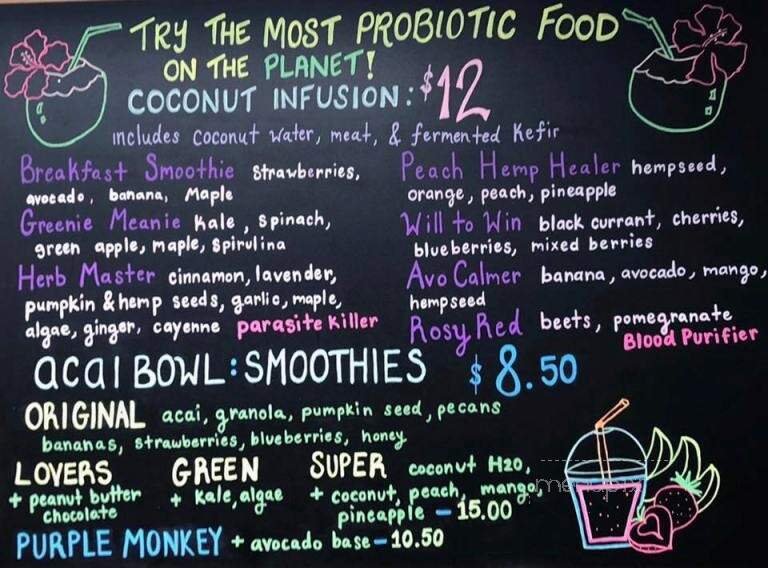 TRY THE MOST PROBIOTIC FOOD
ON THE PLANET!
COCONUT INFUSION: $12
includes coconut water, meat, & fermented kefir
Breakfast Smoothie strawberries,
avocado, banana, Maple
Greenie Meanie kale, spinach,
green apple, maple, spirulina
Herb Master cinnamon, lavender,
pumpkin & hemp seeds, garlic, maple,
algae, ginger, cayenne parasite killer
Peach Hemp Healer hempseed,
orange, peach, pineapple
Will to Win black currant, cherries,
blueberries, mixed berries
Avo Calmer banana, avocado, mango,
hempseed
Rosy Red beets, pomegranate
Blood Purifier
acai BOWL: SMOOTHIES $8.50
ORIGINAL acai, granola, pumpkin seed, pecans
bananas, strawberries, blueberries, honey
LOVERS
+ peanut butter
chocolate
GREEN
+ kale, algae
SUPER coconut H2O,
+ coconut, peach, mango,
pineapple - 15.00
PURPLE MONKEY + avocado base - 10.50